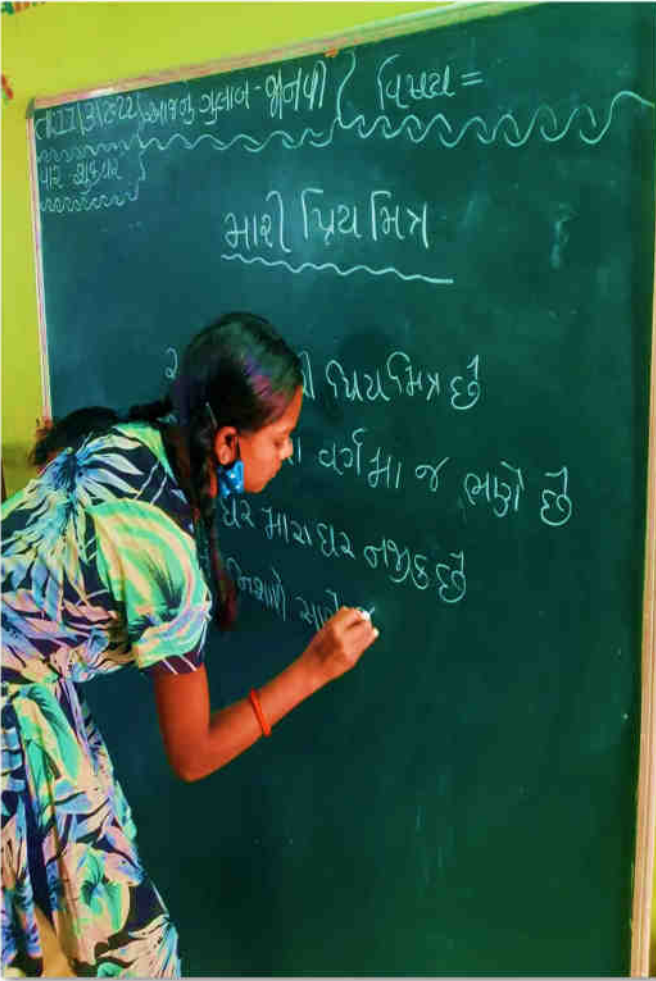 આજનું ગુલાબ - જાનવી વિષય =
વાર - શુક્રવાર
મારી પ્રિય મિત્ર
પ્રિય મિત્ર છે
વર્ગમા જ ભણે છે
ઘર મારા ઘર નજીક છે
નિશાળે સાથે